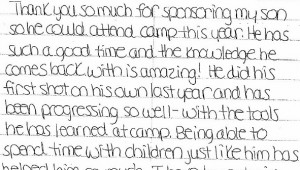 Thank you so much for sponsoring my son
so he could attend camp this year. He has
such a good time and the knowledge he
comes back with is amazing! He did his
first shot on his own last year and has
been progressing so well - with the tools
he has learned at camp. Being able to
spend time with children just like him has
helped him so much. The